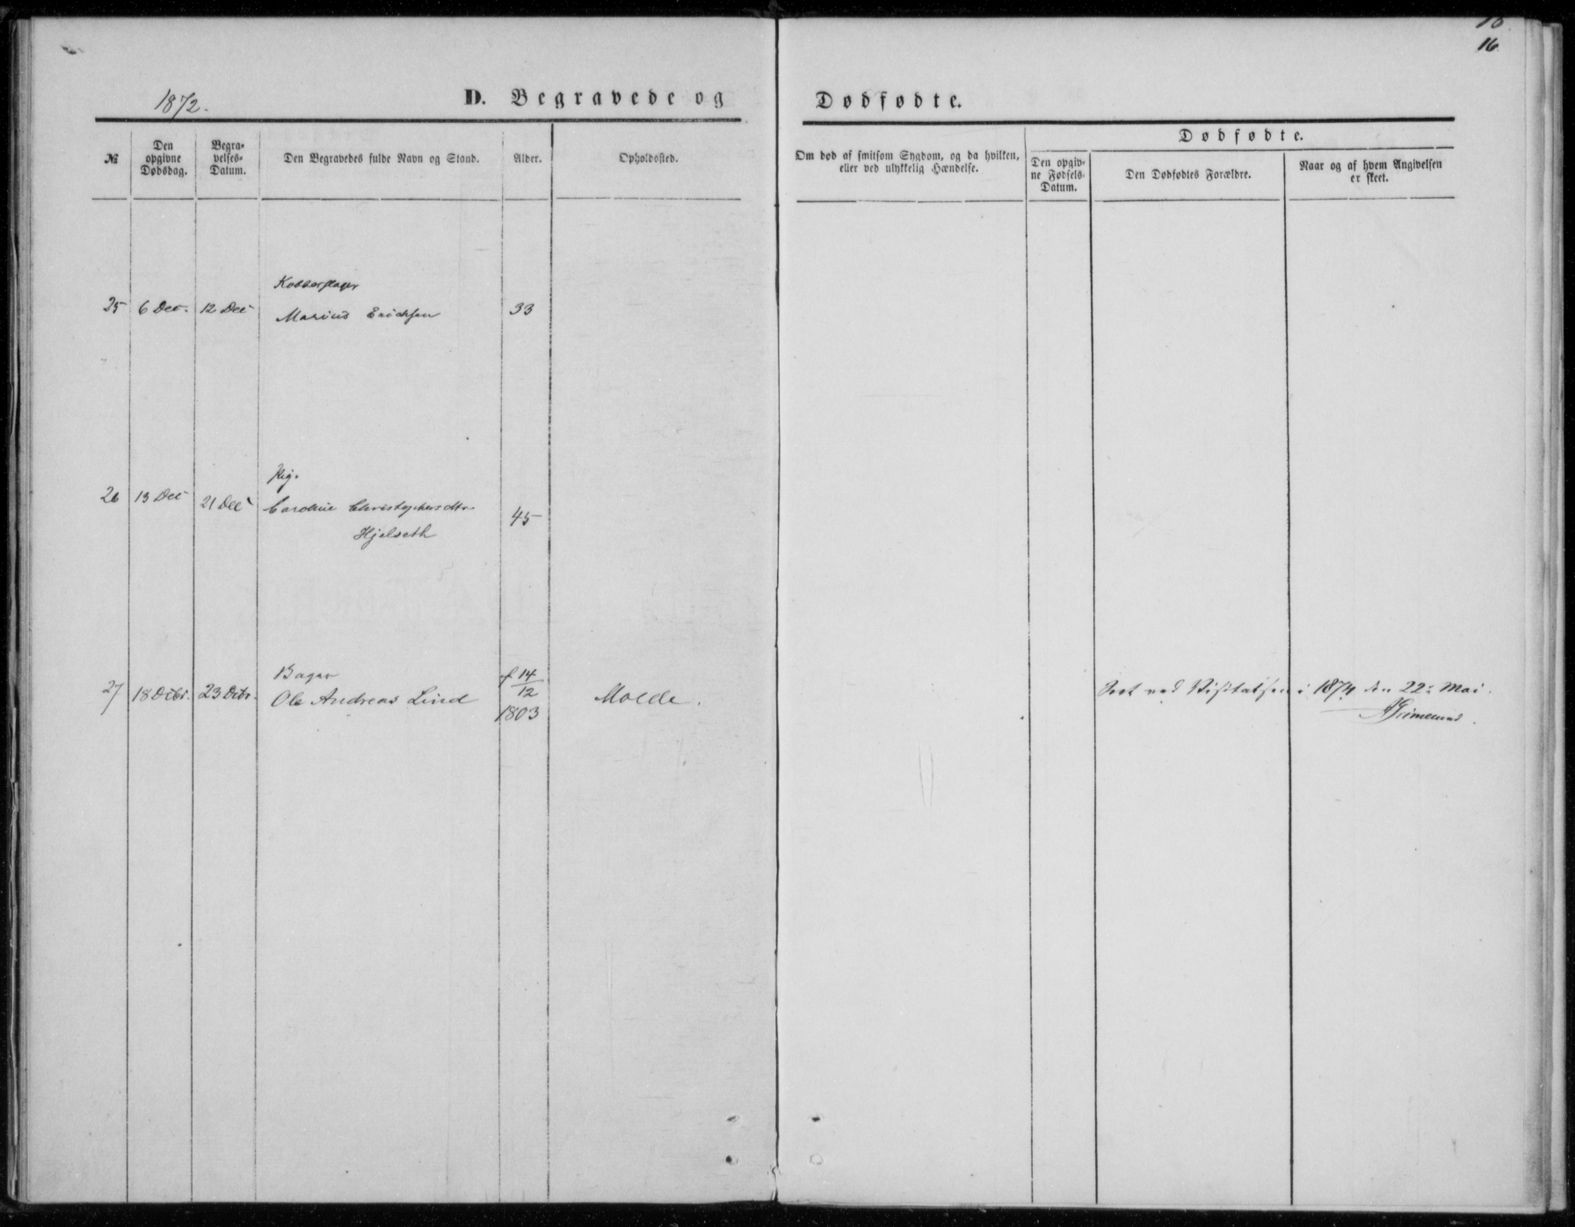 16
16
1872.
D. Begravede og Dødfødte.
№
Den opgivne Dødsdag.
Begra-velses-Datum.
Den Begravedes fulde Navn og Stand.
Alder.
Opholdssted.
Om død af smitsom Sygdom, og da hvilken, eller ved ulykkelig Hændelse.
Dødfødte.
Den opgiv-ne Fødsels-Datum.
Den Dødfødtes Forældre.
Naar og af hvem Angivelsen er skeet.
Kobberslager
25 6 Dec. 12 Dec Marius Erichsen 33
Pige
26 13 Dec 21 Dec Caroline Christophersdtr.
Hjelseth 45
Bager
27 18 Decbr. 23 Decbr. Ole Andreas Lind f 14/12 1803 Molde.
Seet ved Visitatsen i 1874 den 22: Mai.
Grimelund.